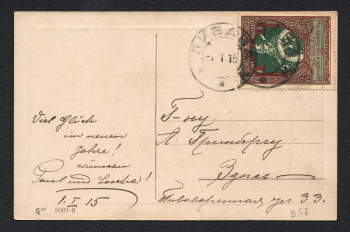 ЛИБАВА
1 1 15
Viel Glück
im neuen
Jahre!
wünschen
Paul und
1. I. 15
Г-ну
Л. Гринбергу
Здѣсь
Пивоваренная ул. 33.
5001-9
856